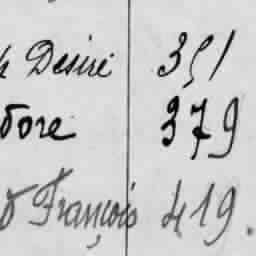 h Desiré 351
dore 379
d François 419.